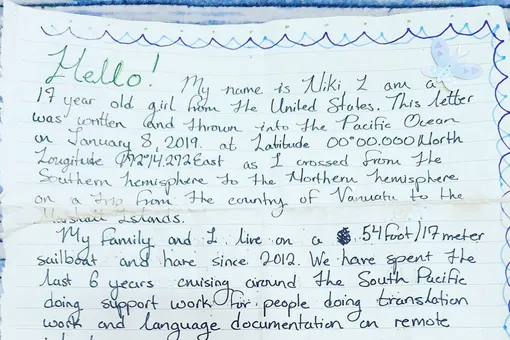 Hello! My name is Niki, I am a
17 year old girl from the United States. This letter
was written and thrown into the Pacific Ocean
on January 8, 2019. at Latitude 00°00.000 North
Longitude 172°14.272 East as I crossed from the
Southern hemisphere to the Northern hemisphere
on a trip from the country of Vanuatu to the
Marshall Islands.
My family and I live on a 54 foot/17 meter
sailboat and have since 2012. We have spent the
last 6 years cruising around the South Pacific
doing support work for people doing translation
work and language documentation on remote